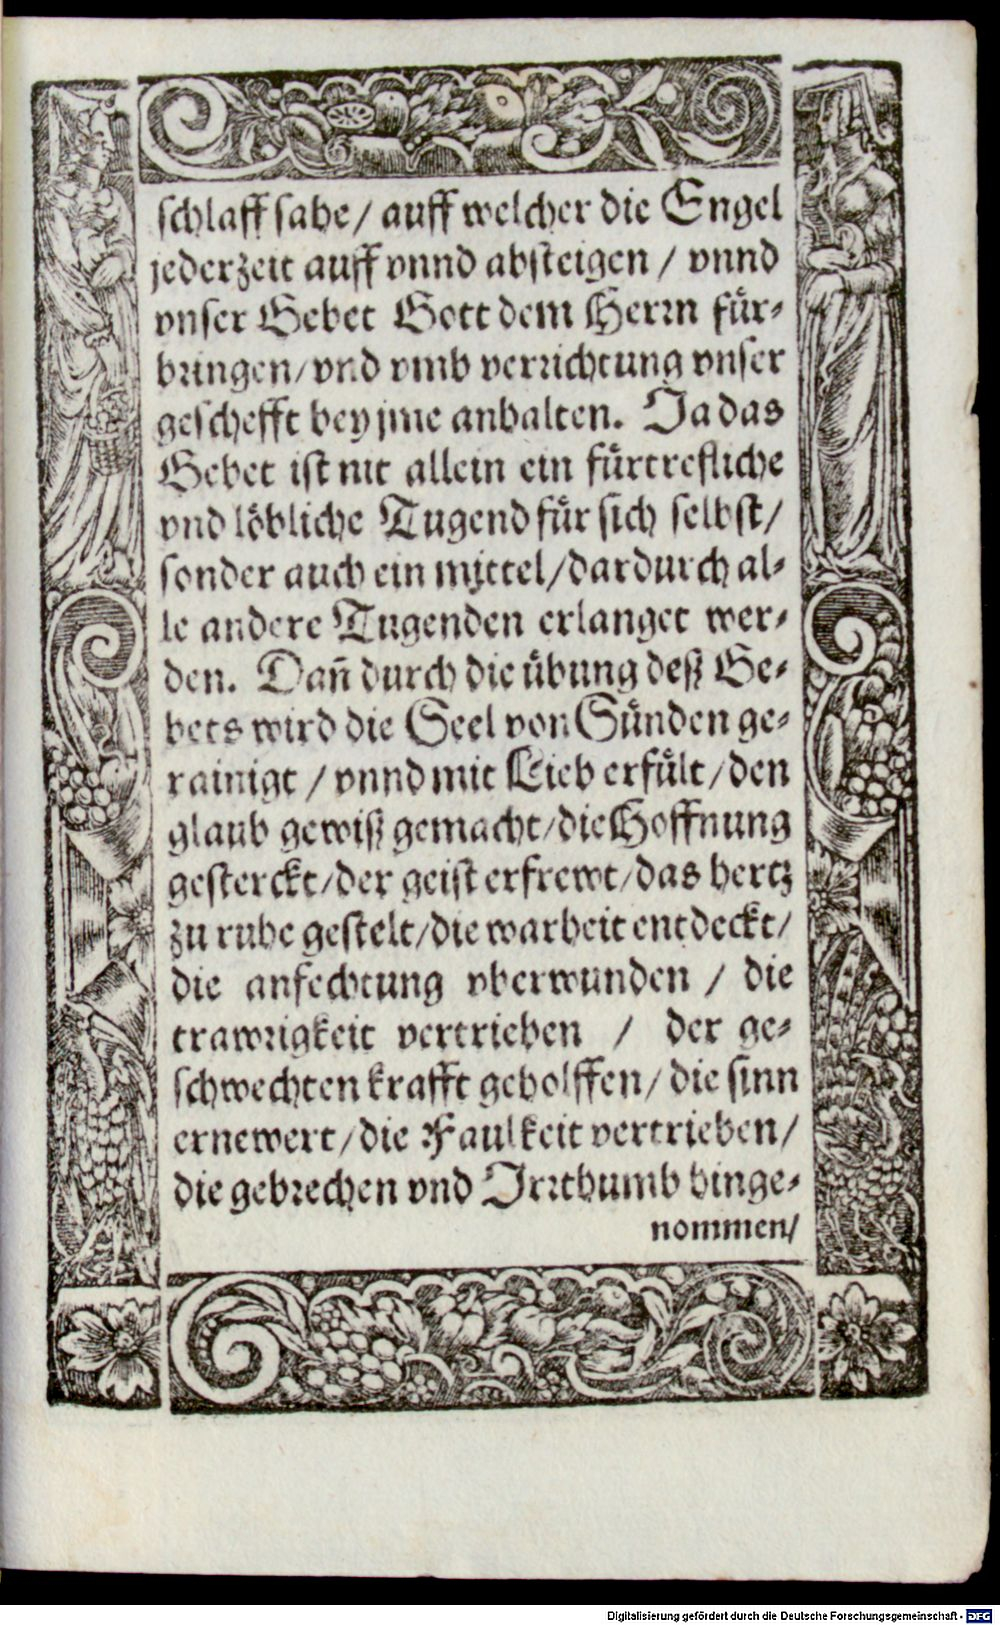 schlaff sahe / auff welcher die Engel
jederzeit auff vnnd absteigen / vnnd
vnser Gebet Gott dem Herrn für-
bringen / vnd vmb verrichtung vnser
geschefft bey jme anhalten. Ja das
Gebet ist nit allein ein fürtrefliche
vnd löbliche Tugend für sich selbst /
sonder auch ein mittel / dardurch al-
le andere Tugenden erlanget wer-
den. Dañ durch die übung deß Ge-
bets wird die Seel von Sünden ge-
rainigt / vnnd mit Lieb erfült / den
glaub gewiß gemacht / die Hoffnung
gesterckt / der geist erfrewt / das hertz
zu ruhe gestelt / die warheit entdeckt /
die anfechtung vberwunden / die
trawrigkeit vertrieben / der ge-
schwechten krafft geholffen / die sinn
ernewert / die Faulkeit vertrieben /
die gebrechen vnd Irrthumb hinge-
nommen /
Digitalisierung gefördert durch die Deutsche Forschungsgemeinschaft - DFG